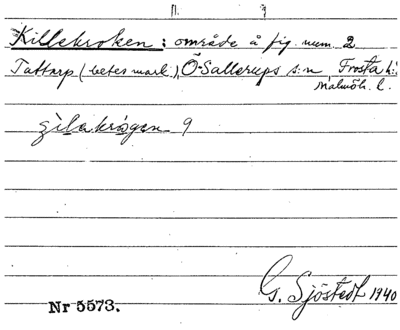 11. 9
Killekroken: område å fig. num. 2
Tattarp (betesmark), Ö. Sallerups s:n, Frosta h:,
Malmöh. l.
gìlakrògen 9
G. Sjöstedt 1940
Nr 5573.